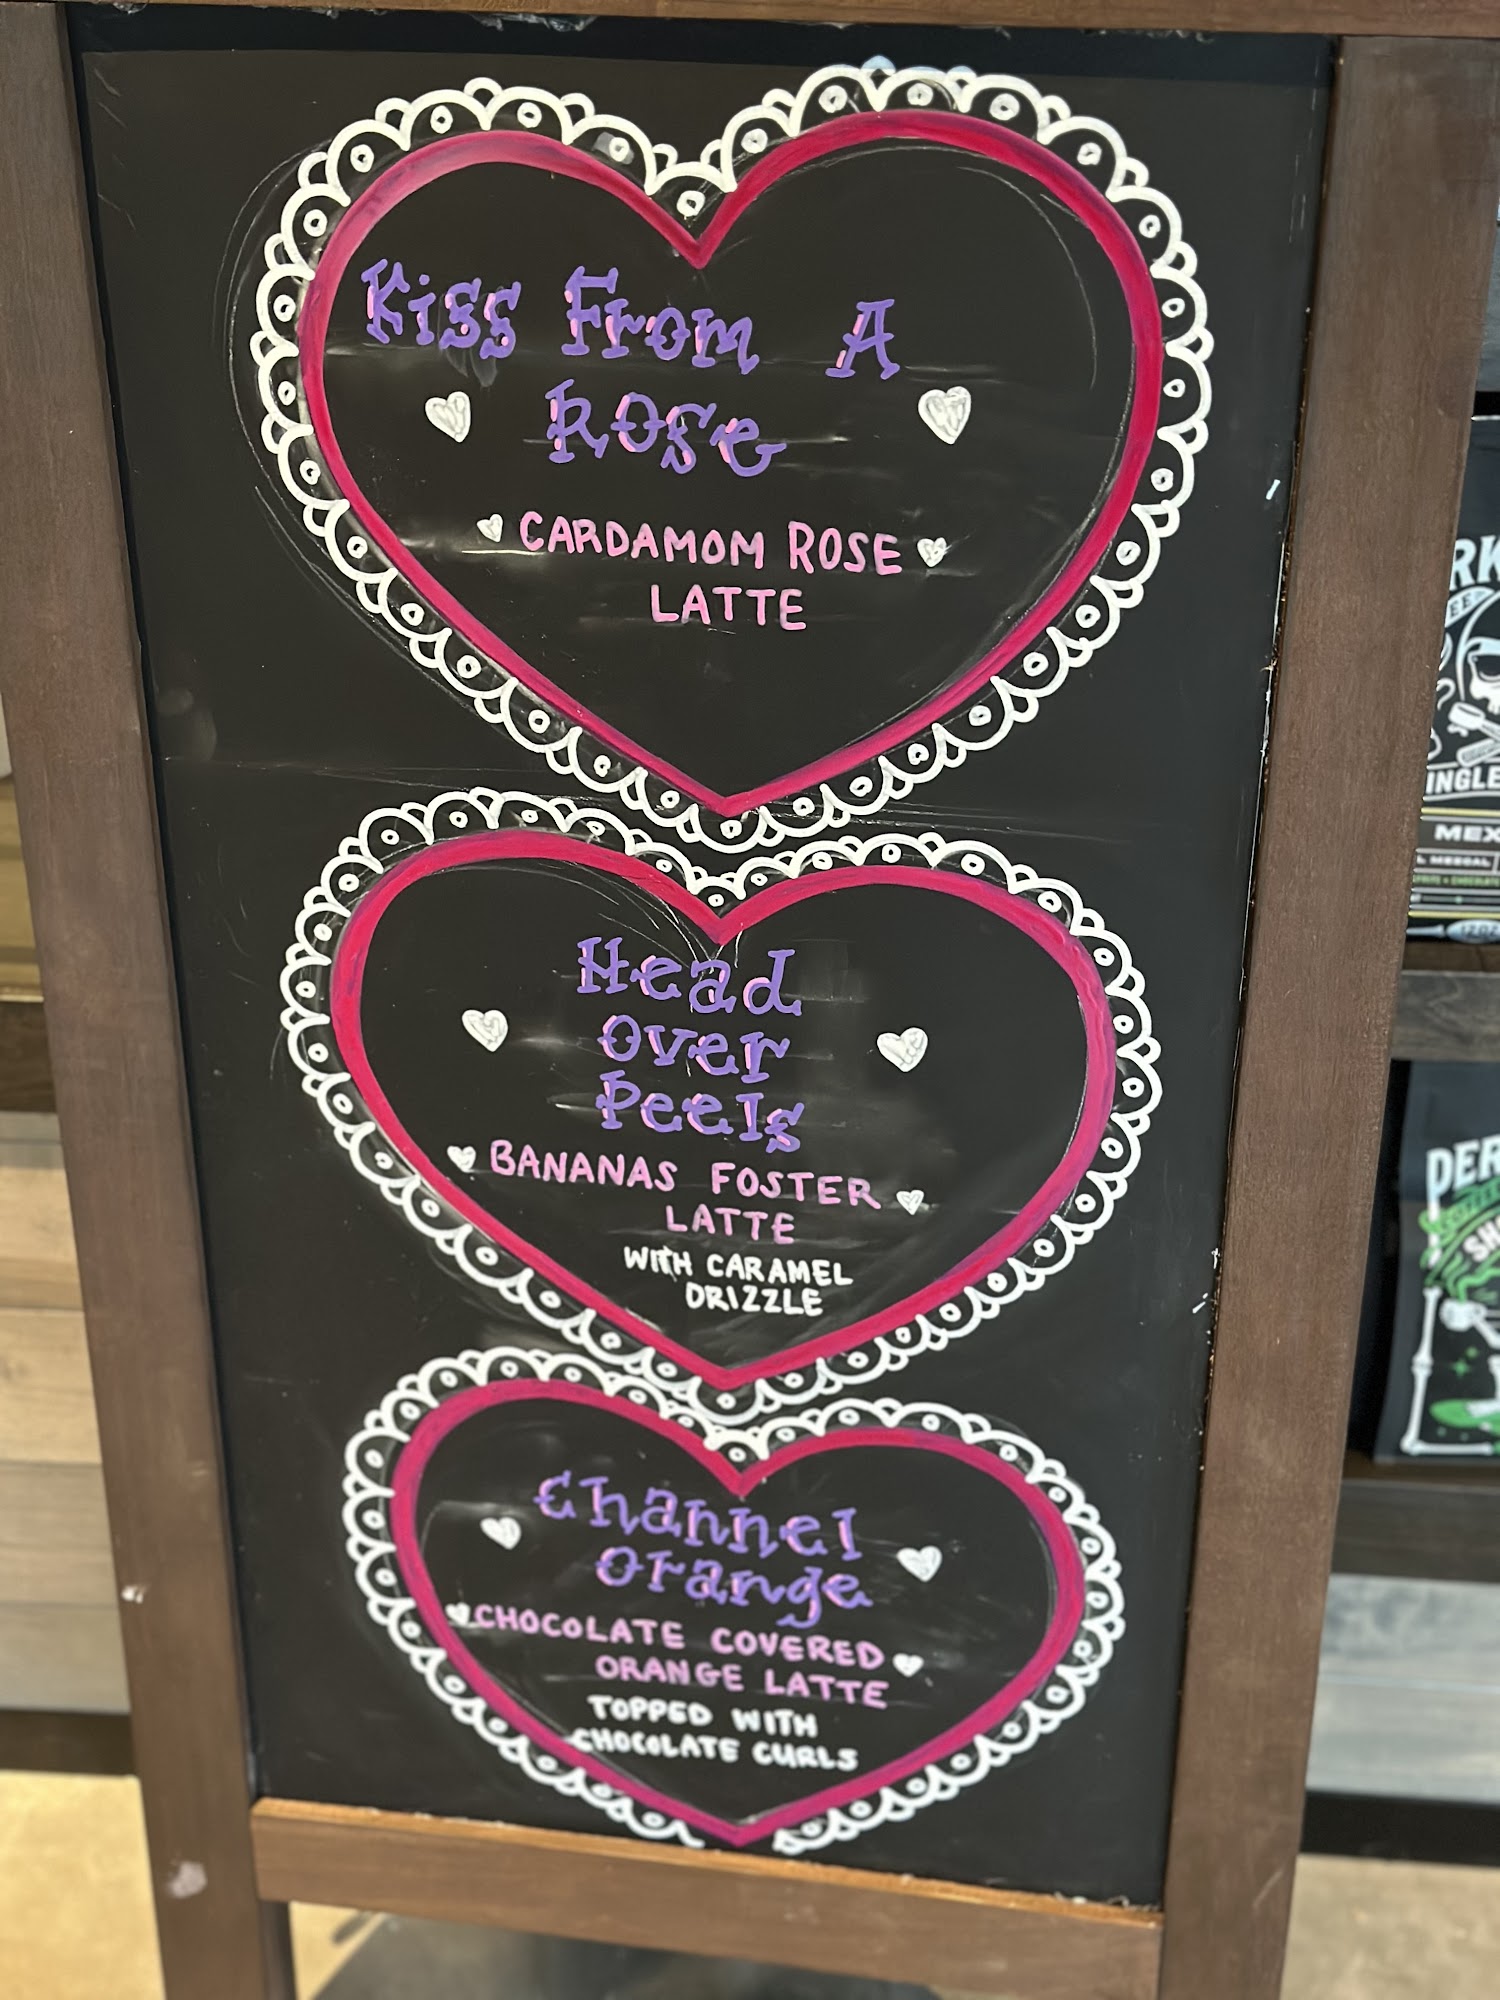 Kiss From A
Rose
CARDAMOM ROSE
LATTE
Head
over
Peels
BANANAS FOSTER
LATTE
WITH CARAMEL
DRIZZLE
Channel
orange
CHOCOLATE COVERED
ORANGE LATTE
TOPPED WITH
CHOCOLATE CURLS
RK
INGLE
MEX
MEZCAL
12 OZ
PER
SH